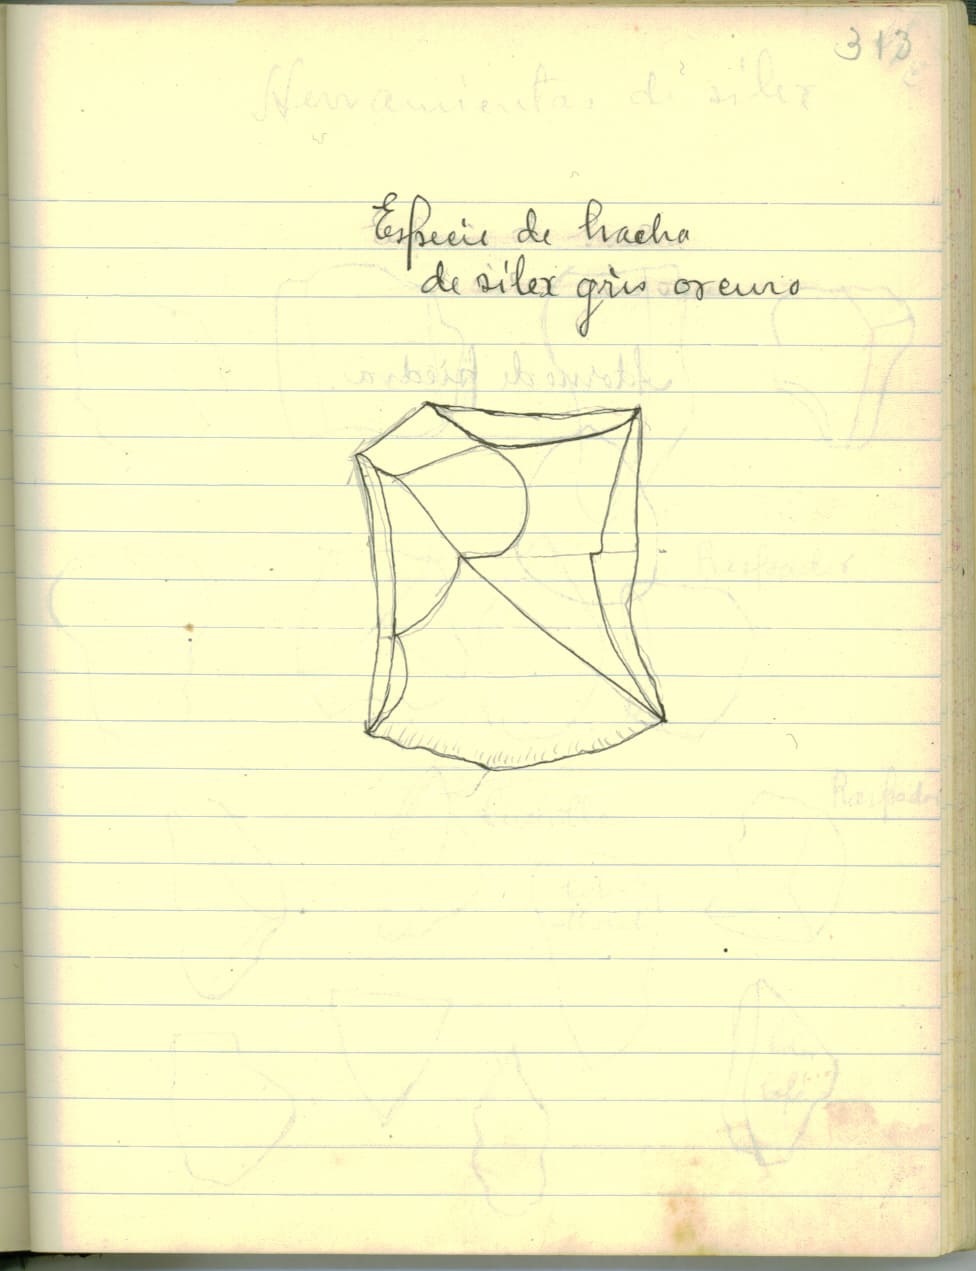 313
Especie de hacha
de sílex gris oscuro